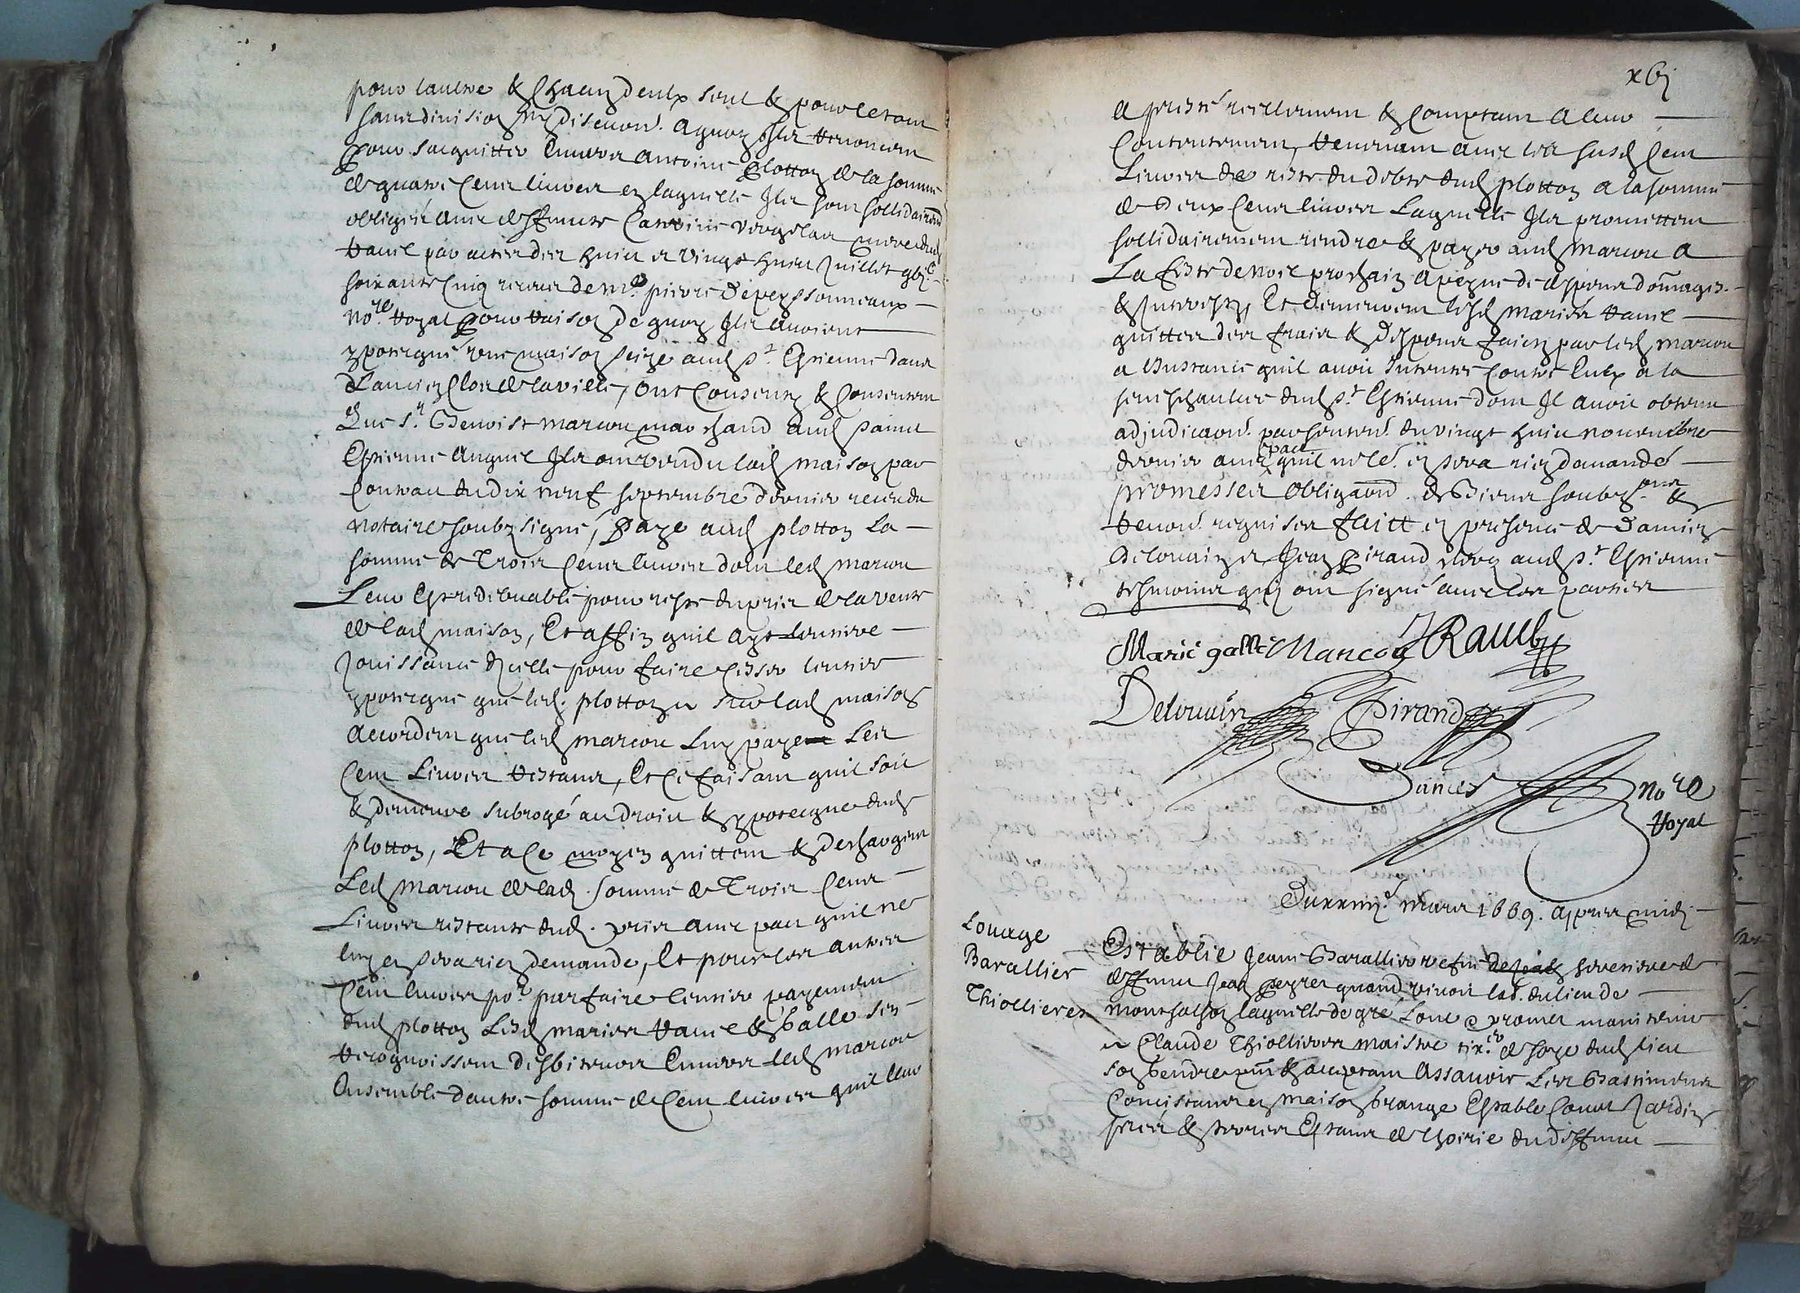 pour lautre & Chacun deulx seul & pour le tout
sans division ny discution. a quoy Ils Renoncent
pour sacquitter Envers Antoine Plotton de la somme
de quatre Cens livres en laquelle Ils sont sollidairemt
obligés avec deffunte Catherine Verzelas mere dud
Ravel par actes des huict et vingt huict Juillet gbic
soixante Cinq receus de me pierre Depeyssonneaux
nore Royal pour Raison de quoy Ils avoient
ypotequé une maison scize aud st Estienne dans
Lancien Clos de la ville, ont Consenty & Consentent
Que sr Benoist marcou marchand aud saint
Estienne Auquel Ils ont vendu lad maison par
Contrat du dix neuf septembre dernier receu du
notaire soubzsigné, Paye aud plotton La
somme de Trois Cens livres dont led marcou
Leur Est redebvable pour reste du prix de la vente
de lad maison, Et affin quil aye Lentiere
Jouissance dicelle pour faire Cesser lentier
ypoteque que led. plotton a sur lad maison
Accordent que led marcou Luy paye Les
Cent Livres Restans, Et Ce faisant quil soit
& demeure subrogé au droit & ypoteque dud
plotton, Et a Ce moyen quittent & deschargent
Led marcou de lad. somme de Trois Cens
Livres restante dud. prix avec pact quil ne
luy en sera rien demandé, Et pour les autres
Cent livres por parfaire lentier payement
dud plotton Lesd mariés Ravel & Galle sen
Recognoissent desbiteurs Envers led marcou
Ensemble dautre somme de Cent livres quil leur
xbj
a presté reellement & Comptant a leur
Contentement, Revenant avec les susd Cent
Livres de reste du debte dud plotton a la somme
de Deux Cens livres Laquelle Ils promettent
sollidairement rendre & payer aud marcou a
La feste de noel prochain a peyne de despens domages
& Interestz, Et demeurent lesd mariés Ravel
quittes des frais & despens faictz par led marcou
a Linstance quil avoit Intentée Contre Eulx a la
seneschaulcée dud st Estienne dont Il avoit obtenu
adjudication par sentence du vingt huict novembre
dernier avec pact quil ne le. en sera rien demandé
promesses obligaons. de Biens soubzons &
Renons. requises faict en presence de Damien
Delouain et Jean Pirand clerq aud st Estienne
tesmoins quy ont signé avec les parties
Marie galle Marcou JRavel
Delouain Pirand
nore
Royal
Du xxiije mars 1669. apres midy
Louage
Barallier
Thiollieres
Establie Jeane Barallier vefve heretiere de
deffunt Jean peyre quand vivoit lad. du lieu de
laquelle de gré Loue & promet maintenir
a Claude Thiollieres maistre de soye dud lieu
Assavoir Les Bastimens
Concistans en maison Grange Estable Cour Jardin
prés & terres Estans de lhoirie du deffunt